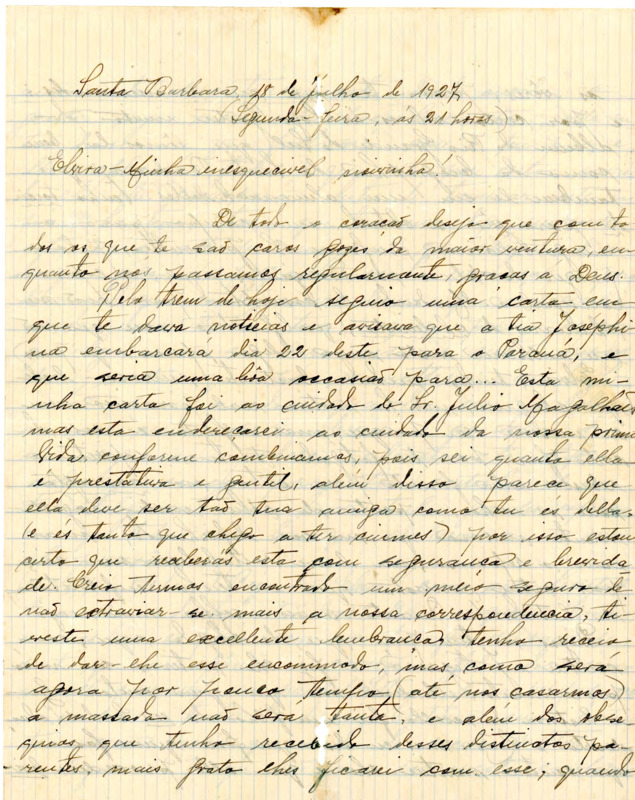 Santa Barbara, 18 de julho de 1927,
(Segunda-feira, ás 21 horas)
Elvira-Minha inesquecivel noivinha!
De todo o coracaõ desejo que com to
dos os que te saõ caros gozes da maior ventura, en
quanto nós passamos regularmente, graças a Deus.
Pelo trem de hoje seguio uma carta em
que te dava noticias e avisava que a tia Josephi
na embarcara dia 22 deste para o Paraná, e
que seria uma bôa occasiaõ para... Esta mi
nha carta foi ao cuidado do Sr. Julio Magalhães
mas esta endereçarei ao cuidado da nossa prima
Vida conforme combinamos, pois sei quanto ella
é prestativa e gentil, alem disso parece que
ella deve ser taõ tua amiga como tu és della
(e és tanto que chego a ter ciumes) por isso estou
certo que receberás esta com segurança e brevida
de. Creio termos encontrado um meio seguro de
naõ extraviar-se mais a nossa correspondencia, ti
veste uma excellente lembrança, tenho receio
de dar-lhe esse encommodo, mas como será
agora por pouco tempo, (até nos casarmos)
a massada naõ será tanta, e além dos obse
quios que tenho recebido desses distinctos pa-
rentes, mais grato lhes ficarei com esse; quando